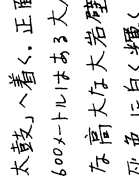 太鼓」へ着く。正面
600メートルはある大
な高大な大岩壁
灰色に白く輝く